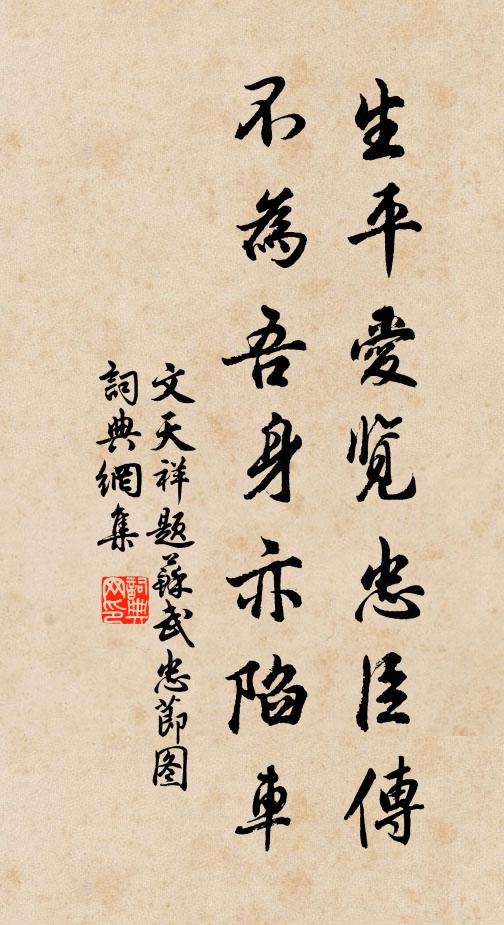 生平愛览忠臣傳
不為吾身亦陷車
文天祥题蘇武忠節图
詞典網集
詞典网印